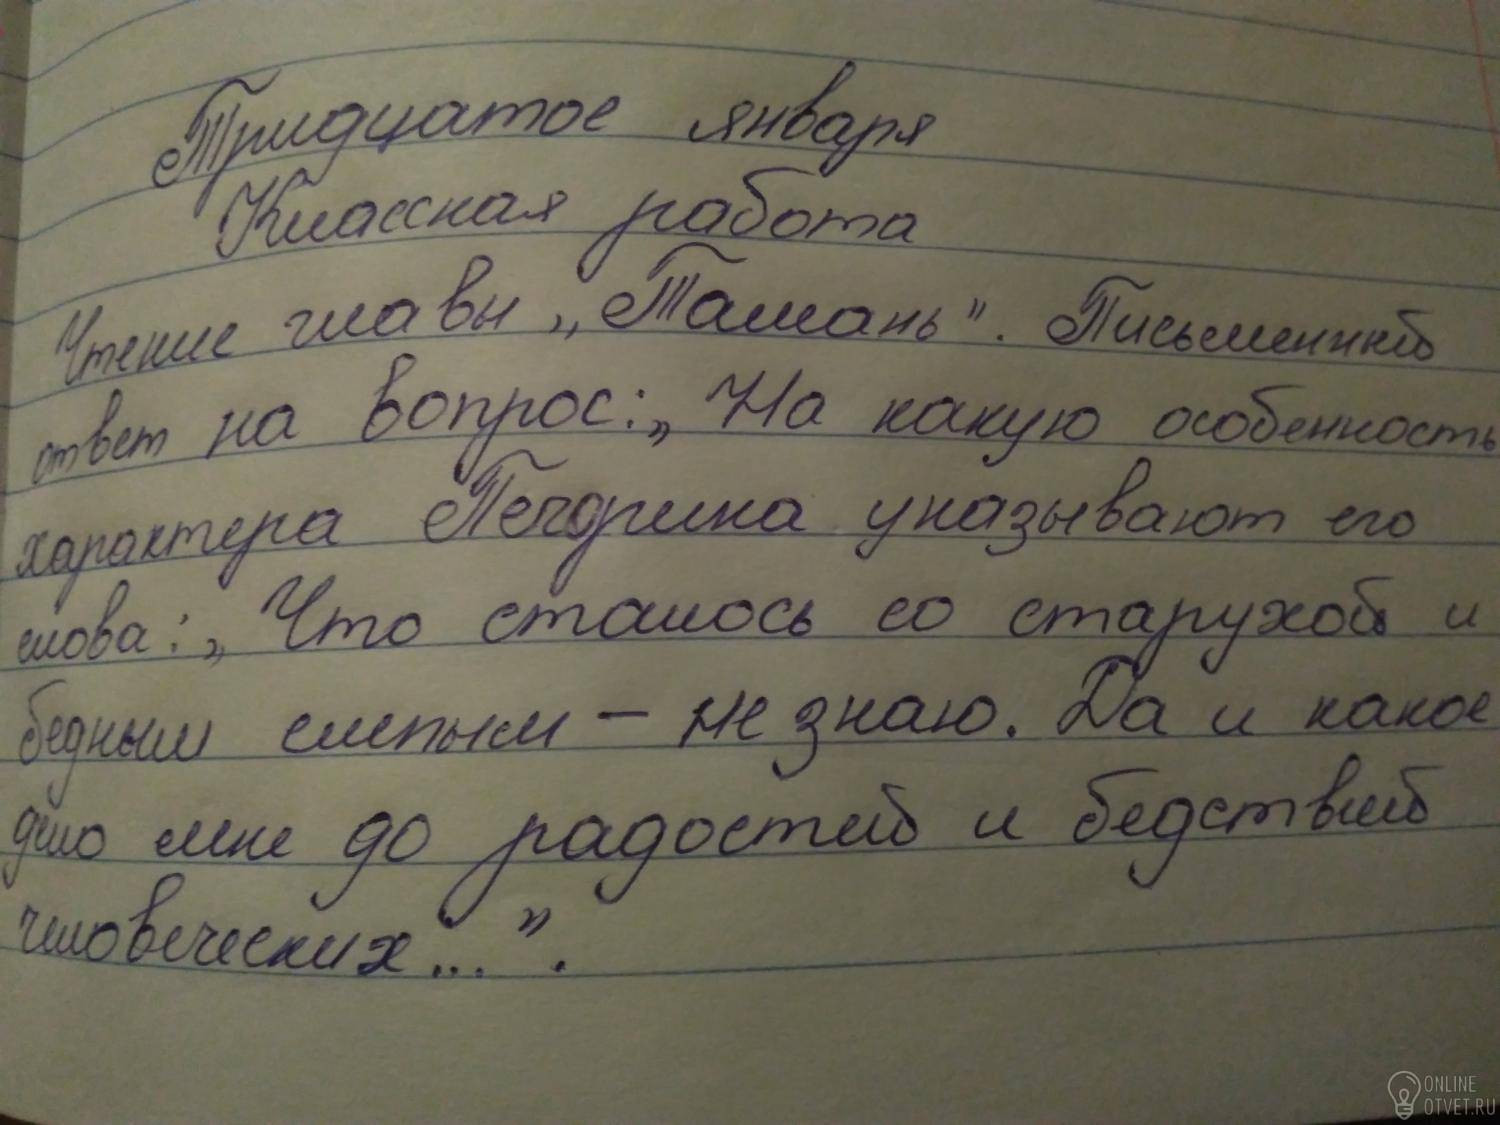 Тридцатое января
Классная работа
Чтение главы „Тамань". Письменный
ответ на вопрос: „На какую особенность
характера Печорина указывают его
слова: „Что сталось со старухой и
бедным слепым – не знаю. Да и какое
дело мне до радостей и бедствий
человеческих...".
ONLINE
OTVET.RU